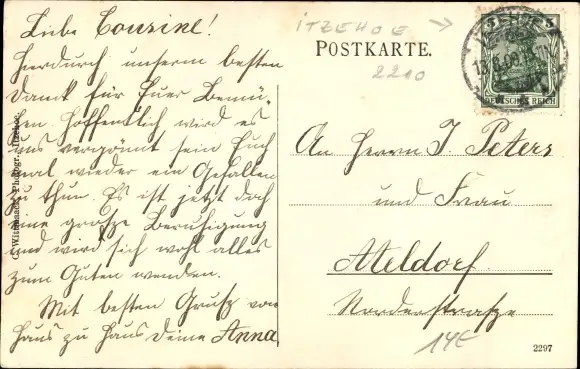 Liebe Cousine!
Hierdurch unsern besten
Dank für Euer Bemü-
hen. Hoffentlich wird es
uns vergönnt sein Euch
mal wieder ein Gefallen
zu thun. Es ist jetzt doch
eine große Beruhigung
und wird sich wohl alles
zum Guten wenden.
Mit besten Gruß von
Haus zu Haus Deine Anna
Photogr. Itzehoe.
ITZEHOE
POSTKARTE.
2210
ITZEHOE
DEUTSCHES REICH
An Herrn J. Peters
und Frau
Meldorf
Norderstraße
14E
2297